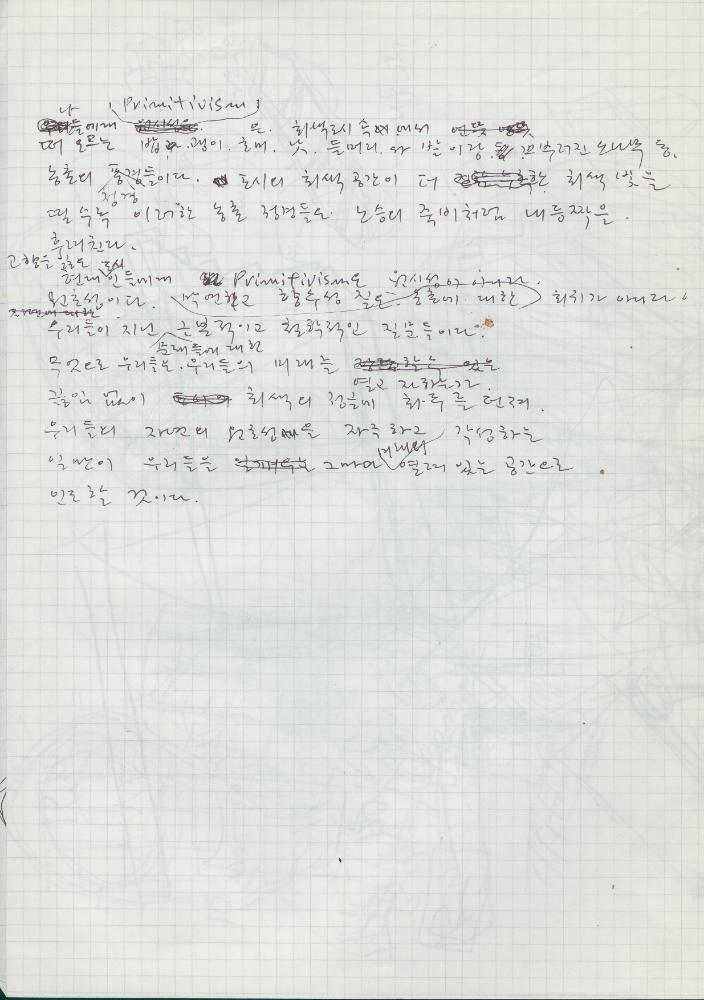 나 (Primitivism)
에게 은. 회색도시 속에서
떠 오르는 괭이. 호미. 낫. 들머리. 와 쌀이랑. 꼬부러진 소나무 등.
농촌의 풍경들이다. 도시의 회색공간이 더 회색 빛을
정경
띨수록 이러한 농촌 정경들은 노승의 죽비처럼 내 등짝을.
후려친다.
고향을
현대인들에게 Primitivism은 원시성이 아니라.
원초성이다. 막연하고 향수성 짙은 농촌에 대한 회귀가 아니라.
우리들이 지닌 근원적이고 철학적인 질문들이다.
존재들에 대한
무엇으로 우리들은. 우리들의 미래를
열고 자하는가.
끊임 없이 회색의 정글에 화두를 던져.
우리들의 자연의 원초성을 자극하고 각성하는
미래의
일만이 우리들을 그나마 열려 있는 공간으로
인도할 것이다.